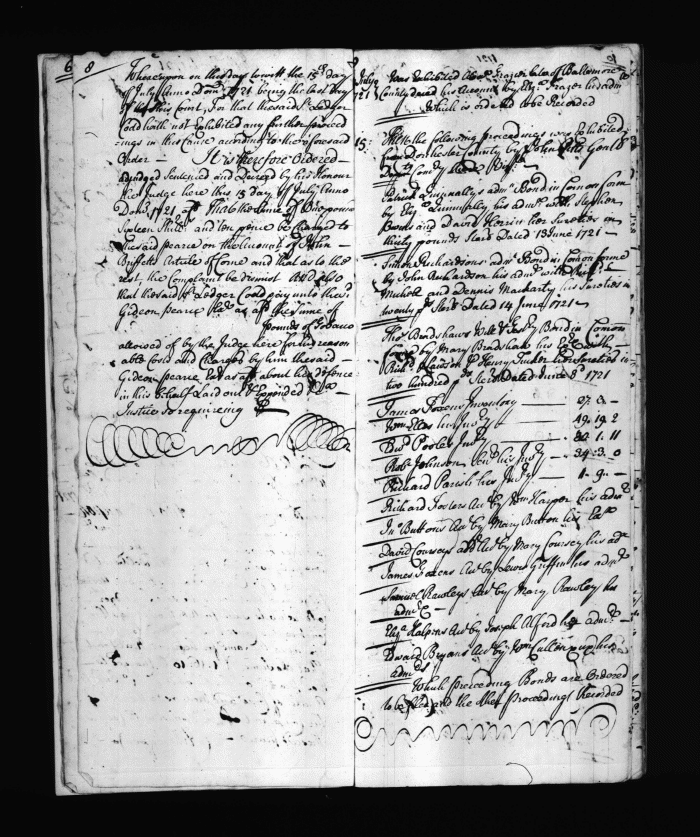 68
Whereupon on this day to witt the 15th day
of July Anno Dom 1721 being the last Day
of this Court, For that the said St Ledger
Codd hath not Exhibited any further proceed
ings in this Cause according to the aforesaid
Order — It is therefore Ordered
adjudged Sentenced and Decreed by his Honour
the Judge here this 15 day of July Anno
Dom 1721 afd That the Sume of
Sixteen Shills and ten pence be Charged to
the said pearce on the Amount of John
Article of Come and that as to the
rest the Complaint be Dismist And also
that the said St Ledger Codd pay unto the sd
Gideon pearce as afd the Sume of
pounds of Tobacco
allowed of by the Judge here for his reason
able Costs and Charges by him the said
Gideon pearce as afd about his defence
in this behalf Laid out & Expended
Justice so requireing
1721
July Was Exhibited Alexr Frazer late of Baltemore
1721 County deced his Account by Eliz Frazer his adm
Which is ordered to be Recorded
15: the following proceedings was Exhibited
from Dorchester County by John Pitt Gent
Depty Comry
Patrick adm Bond in Comon form
by Eliz his admx with Stephen
and David Herrin her Sureties in
thirty pounds Sterl Dated 13 June 1721
Simon Richardsons adm Bond in Comon forme
by John Richardson his adm with
and Dennis Mackarty his Sureties in
twenty pds Sterl Dated 14 June 1721
Thos Bradshaws Will & Test Bond in Comon
form by Mary Bradshaw his Ex with
Richd & Henry Sureties in
two hundred pds Sterl Dated June 8 1721
James Inventory — 27. 3. —
Wm Inry — 49. 19. 2
Pooles Inry — 30. 1. 11
Robt Johnson his Inry — 34. 3. 0
Richard Parish his Inry — 1. 9. —
Richard Fosters Acct by Wm Harper his adm
Jno Buttons Acct by Mary Button his Ex
David Courseys Acct by Mary Coursey his ad
James Acct by Lewis Griffin his adm
Samuel Rawleys Acct by Mary Rawley his
adm
Halpens Acct by Joseph Alford his adm
Edward Bryans Acct by Wm his
adm
Which preceeding Bonds are Ordered
to be filed and the other proceedings Recorded